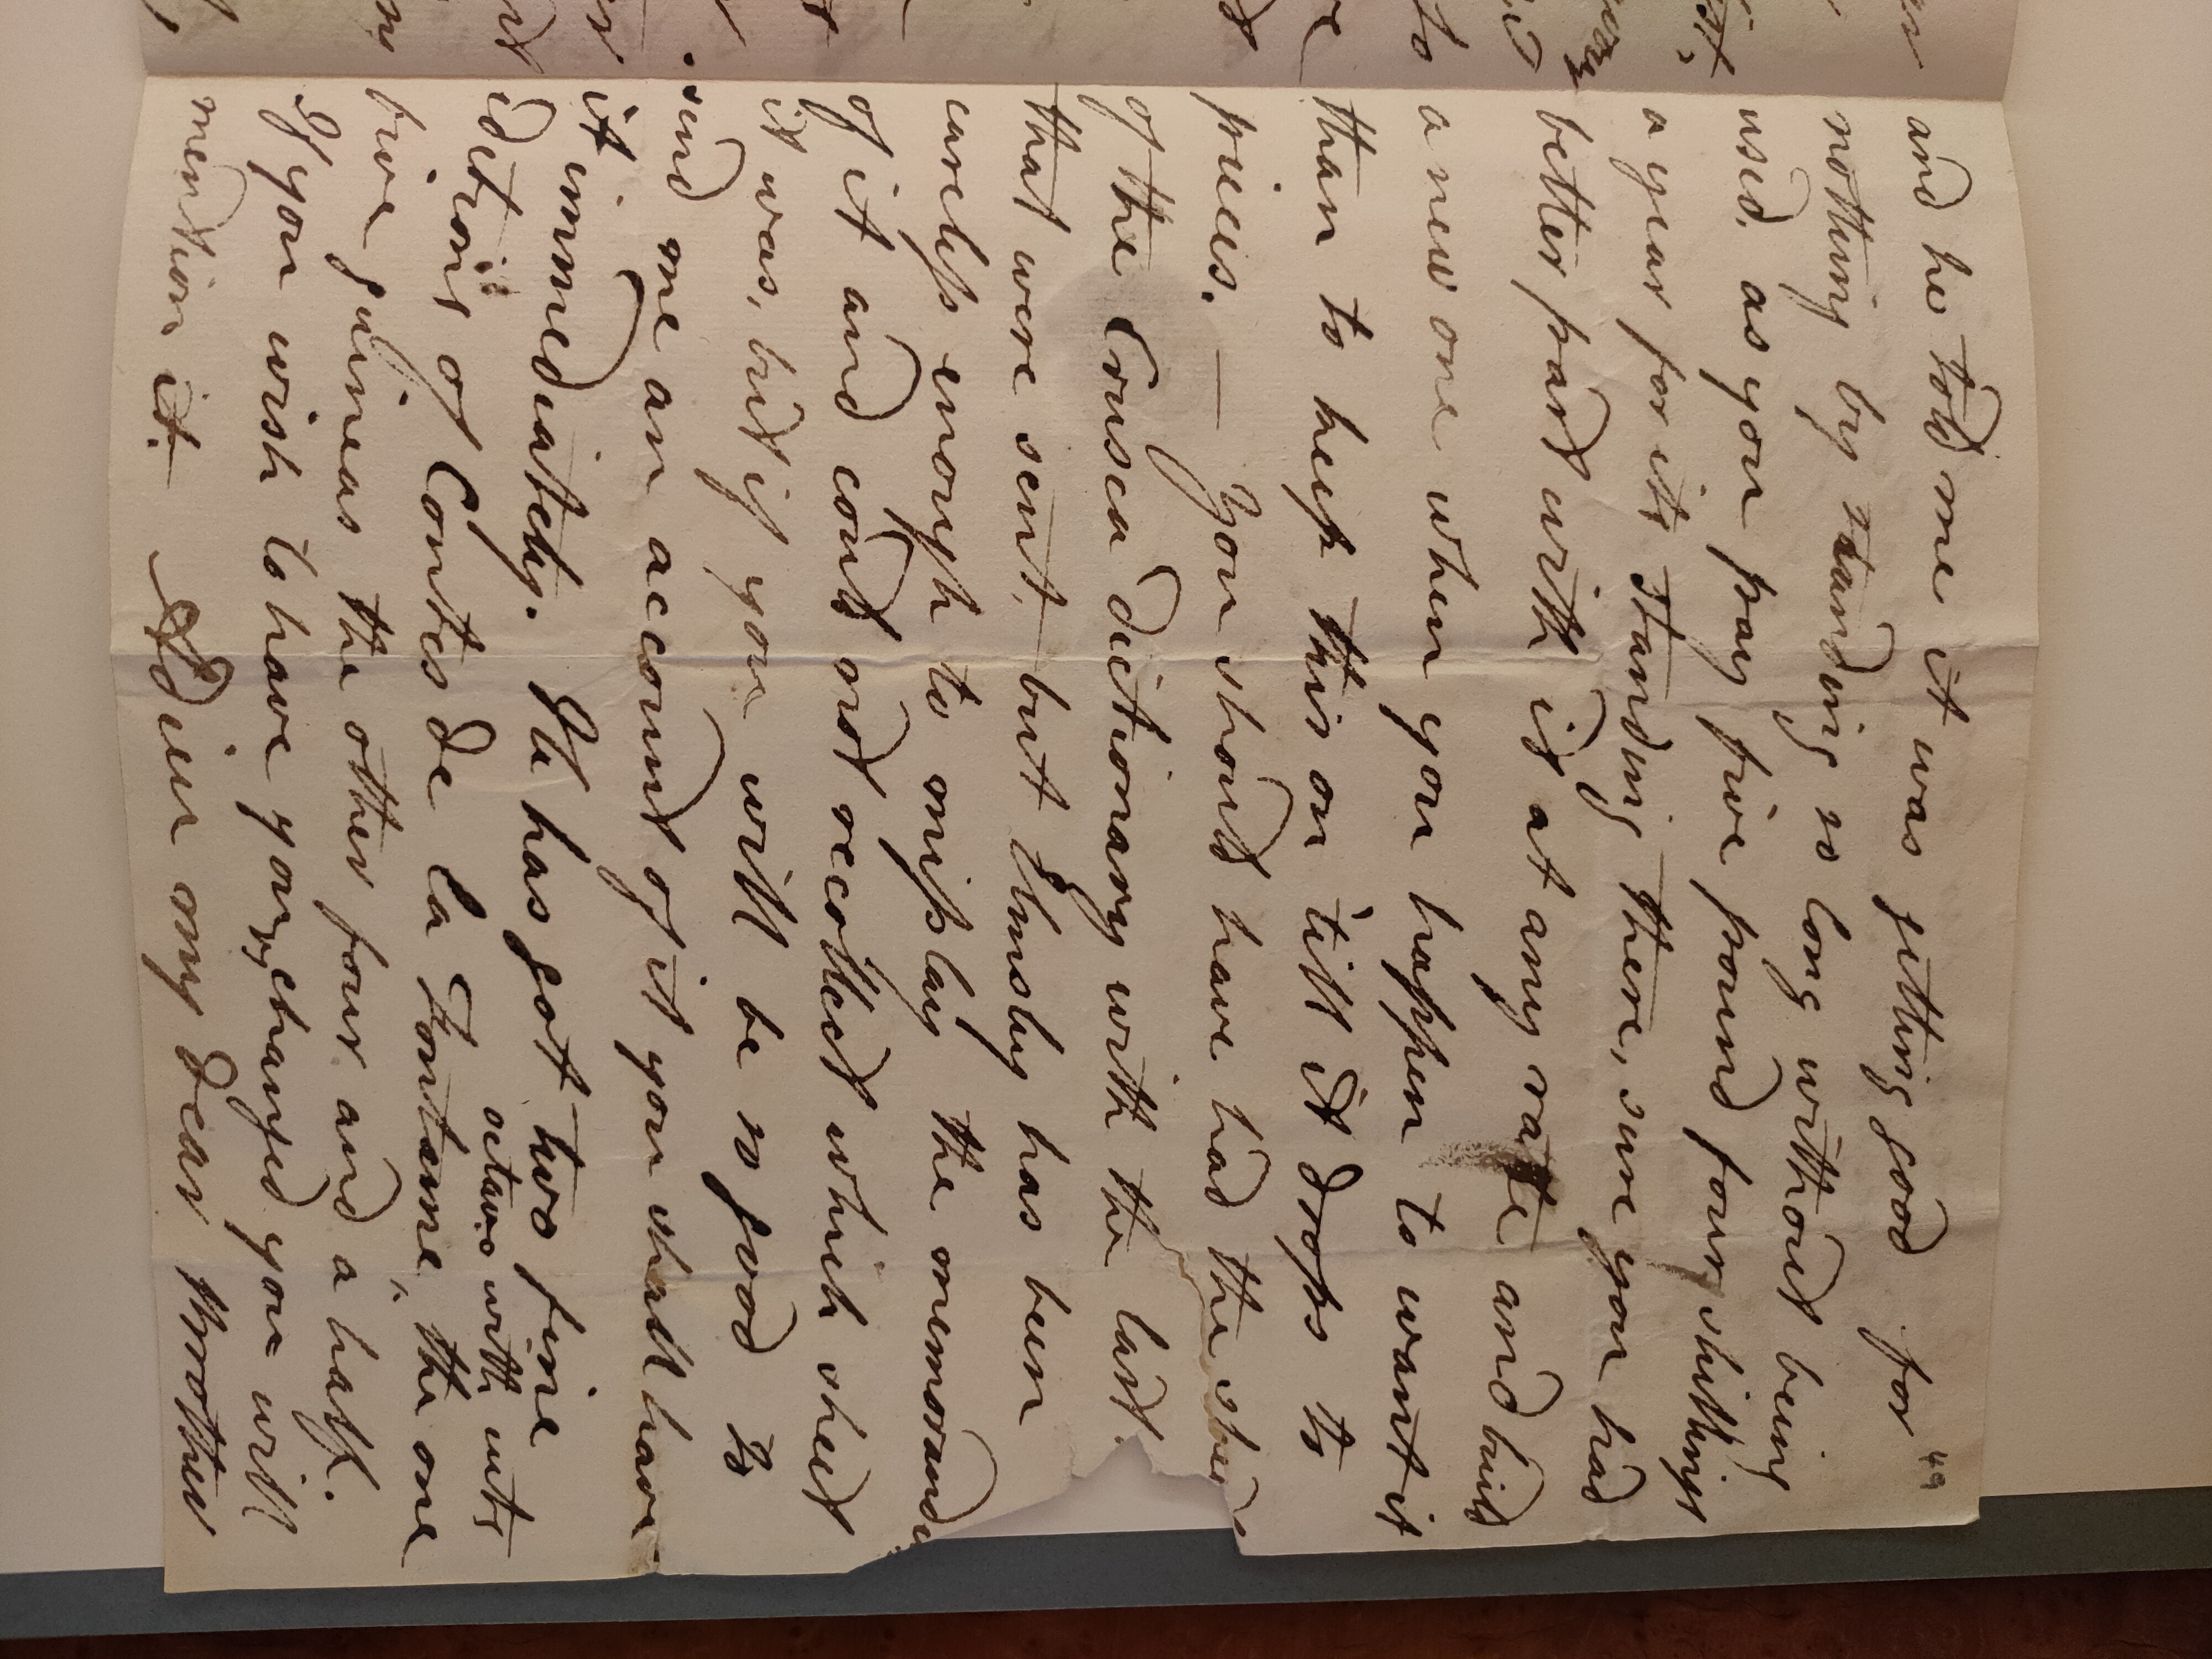 49
and he told me it was getting good for
nothing by standing so long without being
used, as you pay five pound four shillings
a year for its standing there, sure you had
better part with it at any rate and build
a new one when you happen to want it
than to keep this on 'till it drops to
pieces. — You should have had the
of the Crusca dictionary with the last
that were sent, but Elmsley has been
careless enough to mislay the
of it and could not recollect which sheet
it was, but if you will be so good to
send me an account of it you shall have
it immediately. He has got two fine
octavo with cuts
editions of Contes de la Fontaine, the one
five guineas the other four and a half.
If you wish to have yours changed you will
mention it. Adieu my dear Brother